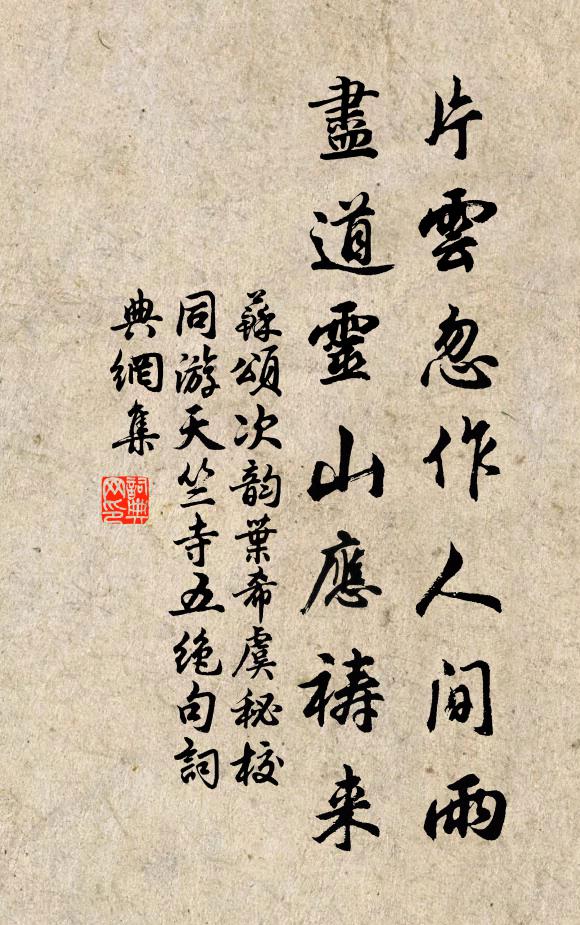 片雲忽作人間雨
盡道靈山應禱来
蘇頌次韵葉希虞秘校
同游天竺寺五絶句詞
典網集
詞典
网印